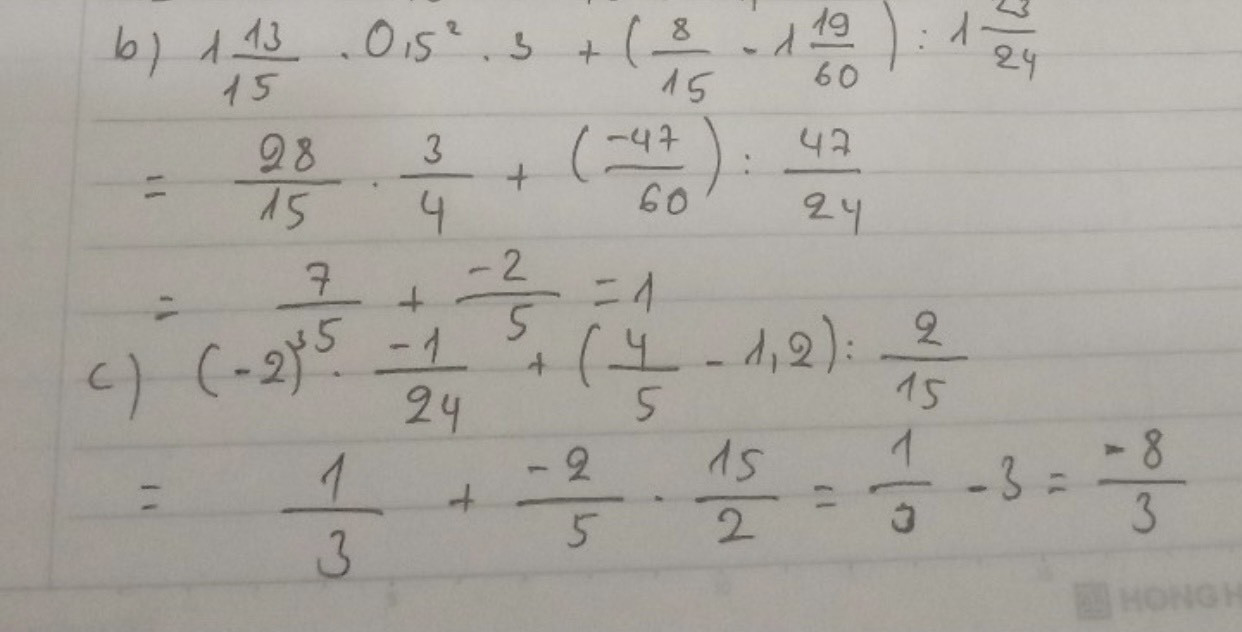 b) 1 13/15 . 0,5² . 3 + (8/15 - 1 19/60) : 1 23/24
= 28/15 . 3/4 + (-47/60) : 47/24
= 7/5 + -2/5 = 1
c) (-2)³ . -1/24 + (4/5 - 1,2) : 2/15
= 1/3 + -2/5 . 15/2 = 1/3 - 3 = -8/3
HONG H